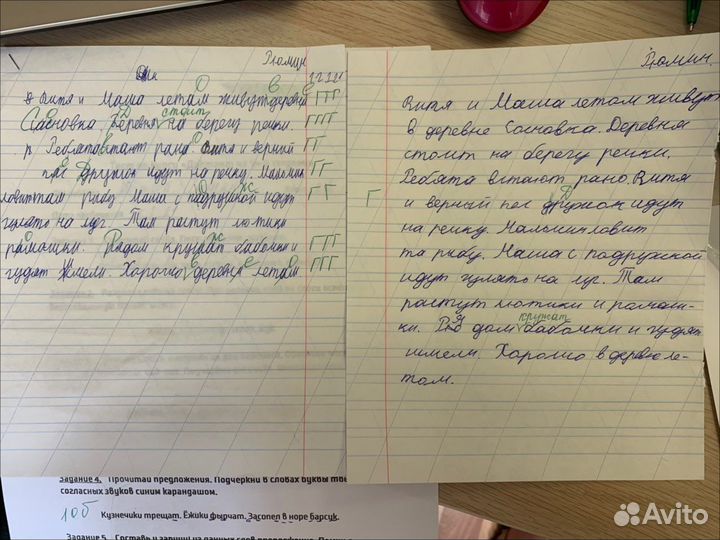 Витя и Маша летам живут деревне
Сасновка. Деревня стоит на берегу речки.
Ребята встают рано. Витя и верный
пёс Дружок идут на речку. Мальчик
ловит там рыбу. Маша с подружкой идут
гулять на луг. Там растут лютики
ромашки. Рядом кружат бабочки и
гудят шмели. Хорошо в деревне летом
Витя и Маша летом живут
в деревне Сосновка. Деревня
стоит на берегу речки.
Ребята встают рано. Витя
Г и верный пёс дружок идут
на речку. Мальчик ловит
та рыбу. Маша с подружкой
идут гулять на луг. Там
растут лютики и ромаш-
ки. Ря дом кружат бабочки и гудят
шмели. Хорошо в деревне ле-
том.
Задание 4. Прочитай предложения. Подчеркни в словах буквы
согласных звуков синим карандашом.
10б
Кузнечики трещат. Ёжики фырчат. Засопел в норе барсук.
Задание 5. Составь и запиши из данных слов предложения.
Avito